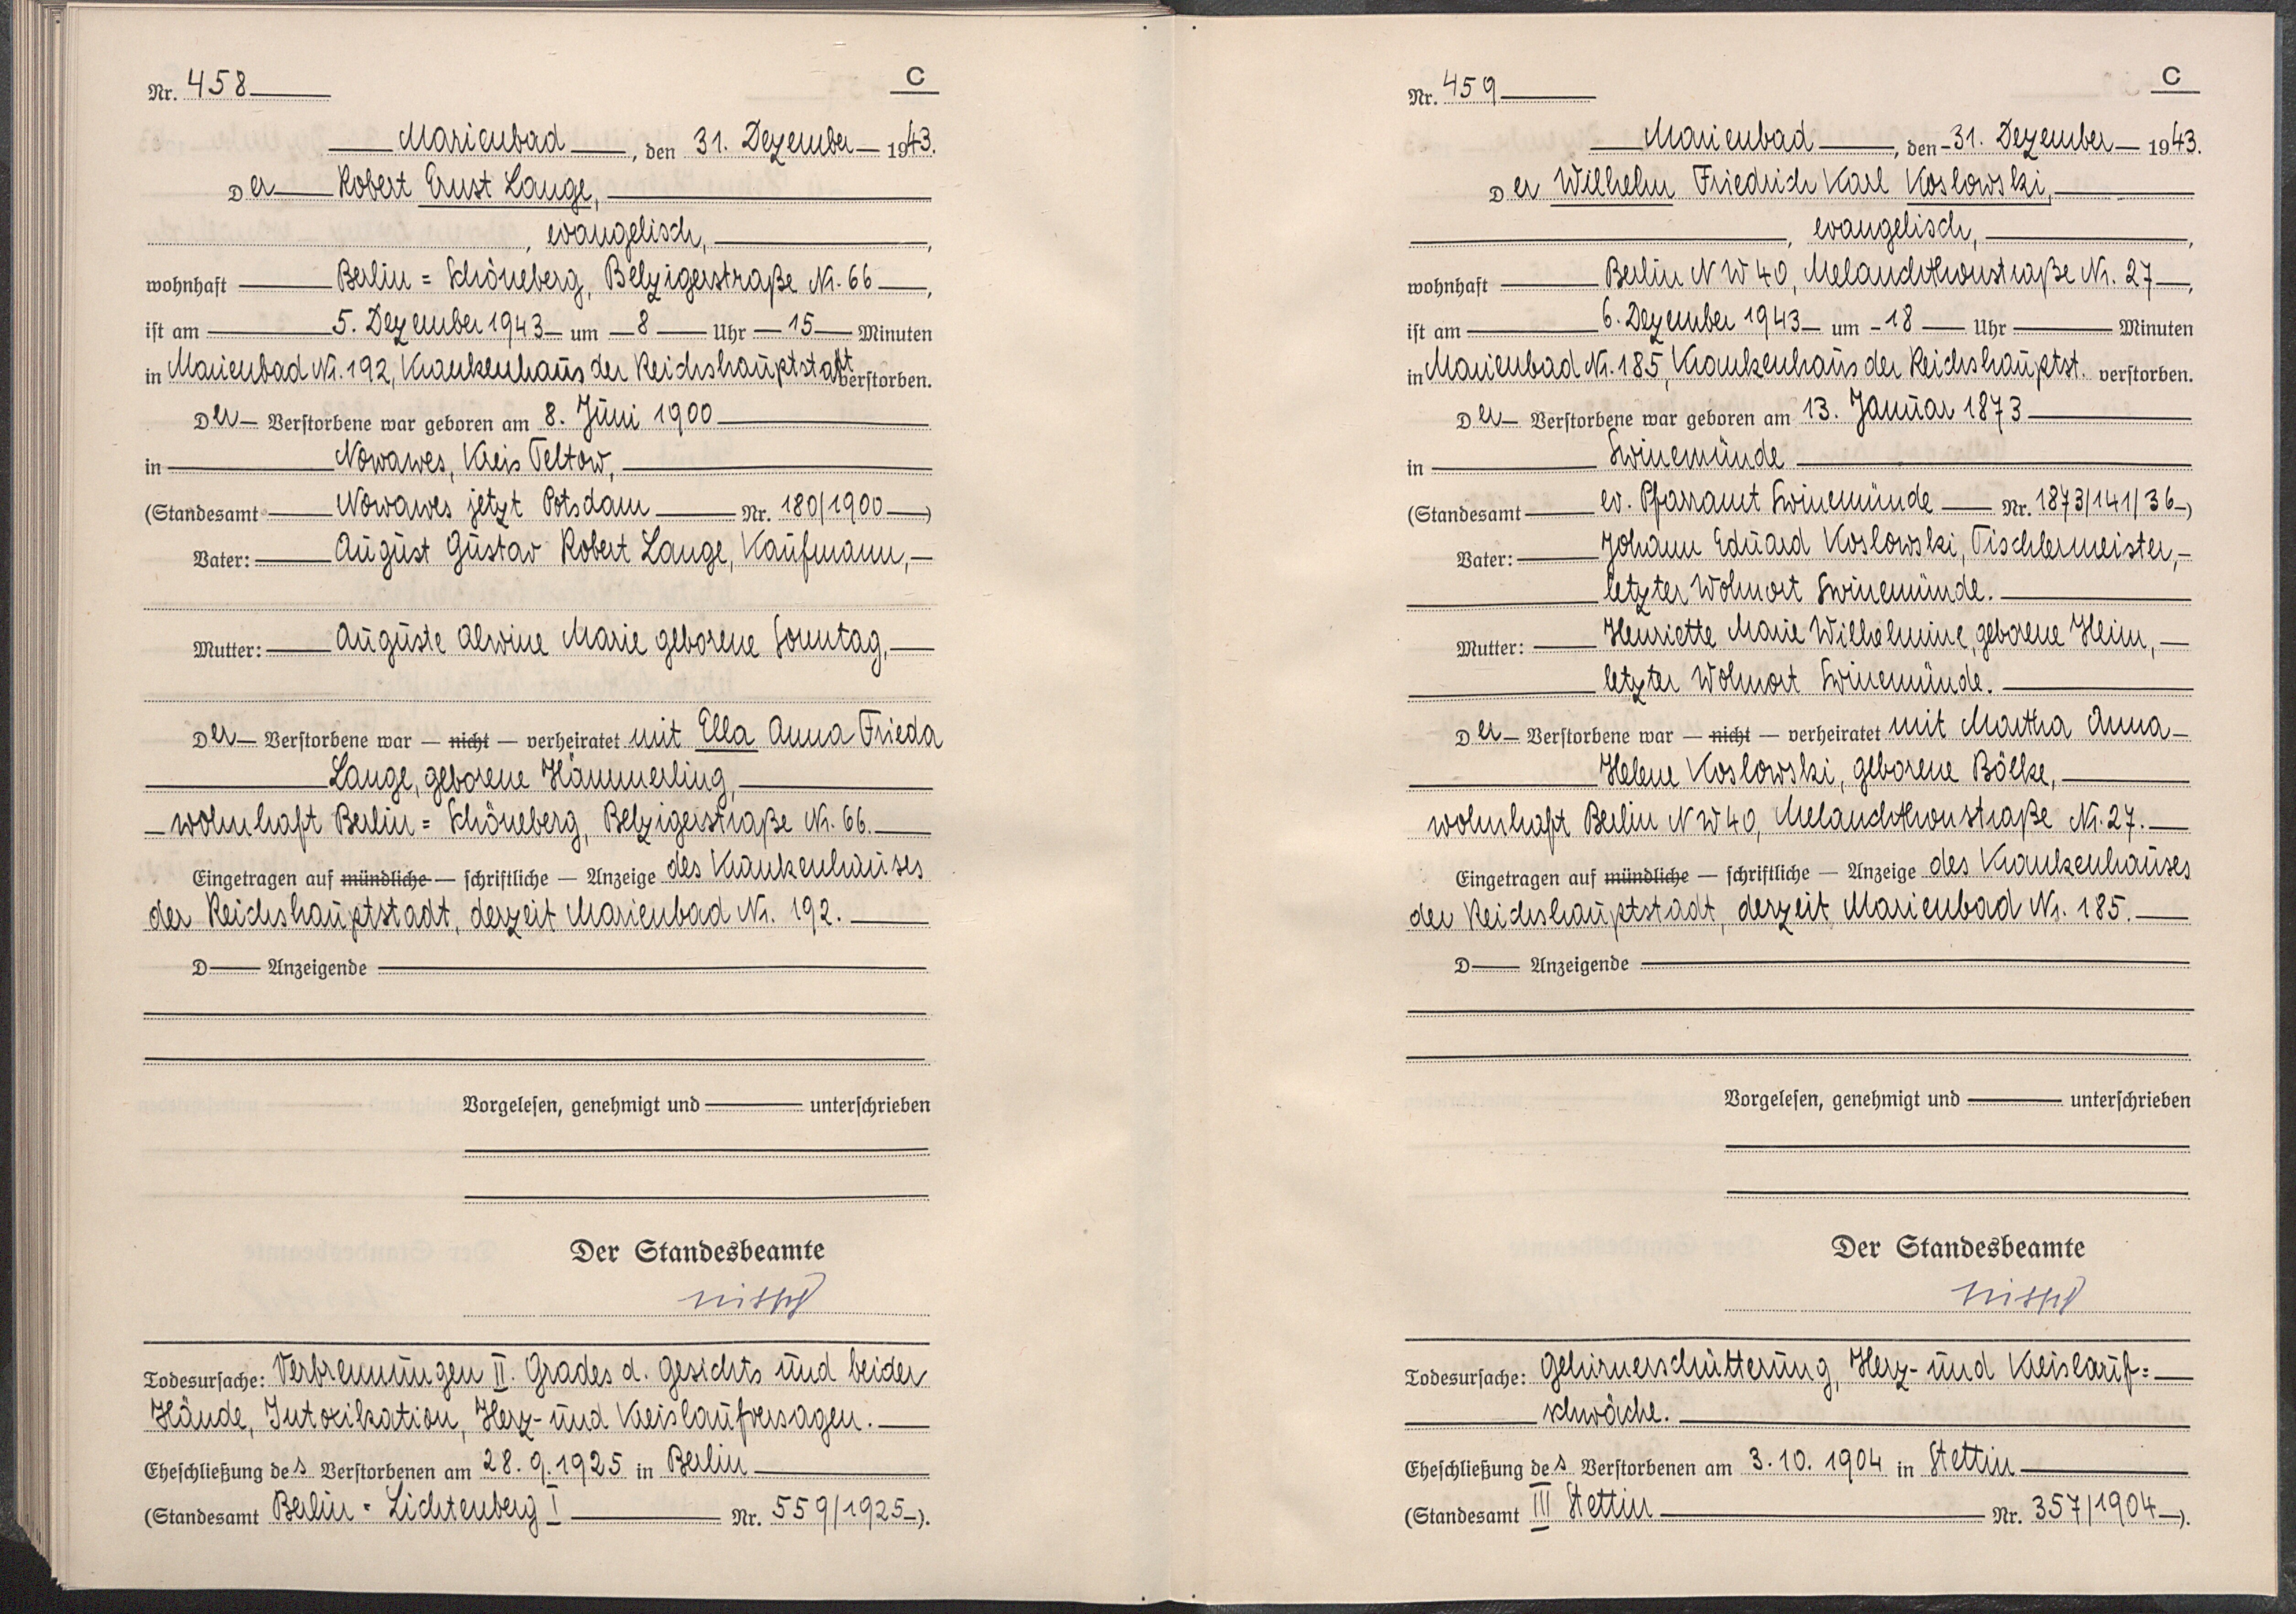 Nr. 458
C
Marienbad, den 31. Dezember 1943.
Der Robert Ernst Lange,
, evangelisch,
wohnhaft Berlin = Schöneberg, Belzigerstraße Nr. 66,
ist am 5. Dezember 1943 um 8 Uhr 15 Minuten
in Marienbad Nr. 192, Krankenhaus der Reichshauptstadt verstorben.
Der Verstorbene war geboren am 8. Juni 1900
in Nowawes, Kreis Teltow,
(Standesamt Nowawes jetzt Potsdam Nr. 180/1900)
Vater: August Gustav Robert Lange, Kaufmann,
Mutter: Auguste Alwine Marie geborene Sonntag,
Der Verstorbene war — nicht — verheiratet mit Ella Anna Frieda
Lange, geborene Hämmerling,
wohnhaft Berlin = Schöneberg, Belzigerstraße Nr. 66.
Eingetragen auf mündliche — schriftliche — Anzeige des Krankenhauses
der Reichshauptstadt, derzeit Marienbad Nr. 192.
D Anzeigende
Vorgelesen, genehmigt und unterschrieben
Der Standesbeamte
Todesursache: Verbrennungen II. Grades d. Gesichts und beider
Hände, Intoxikation, Herz- und Kreislaufversagen.
Eheschließung des Verstorbenen am 28.9.1925 in Berlin
(Standesamt Berlin = Lichtenberg I Nr. 559/1925).
Nr. 459
C
Marienbad, den 31. Dezember 1943.
Der Wilhelm Friedrich Karl Koslowski,
, evangelisch,
wohnhaft Berlin NW 40, Melanchthonstraße Nr. 27,
ist am 6. Dezember 1943 um 18 Uhr Minuten
in Marienbad Nr. 185, Krankenhaus der Reichshauptst. verstorben.
Der Verstorbene war geboren am 13. Januar 1873
in Swinemünde
(Standesamt ev. Pfarramt Swinemünde Nr. 1873/141/36)
Vater: Johann Eduard Koslowski, Tischlermeister,
letzter Wohnort Swinemünde.
Mutter: Henriette Marie Wilhelmine, geborene Heim,
letzter Wohnort Swinemünde.
Der Verstorbene war — nicht — verheiratet mit Martha Anna
Helene Koslowski, geborene Bölke,
wohnhaft Berlin NW 40, Melanchthonstraße Nr. 27.
Eingetragen auf mündliche — schriftliche — Anzeige des Krankenhauses
der Reichshauptstadt, derzeit Marienbad Nr. 185.
D Anzeigende
Vorgelesen, genehmigt und unterschrieben
Der Standesbeamte
Todesursache: Gehirnerschütterung, Herz- und Kreislauf=
schwäche.
Eheschließung des Verstorbenen am 3.10.1904 in Stettin
(Standesamt III Stettin Nr. 357/1904).